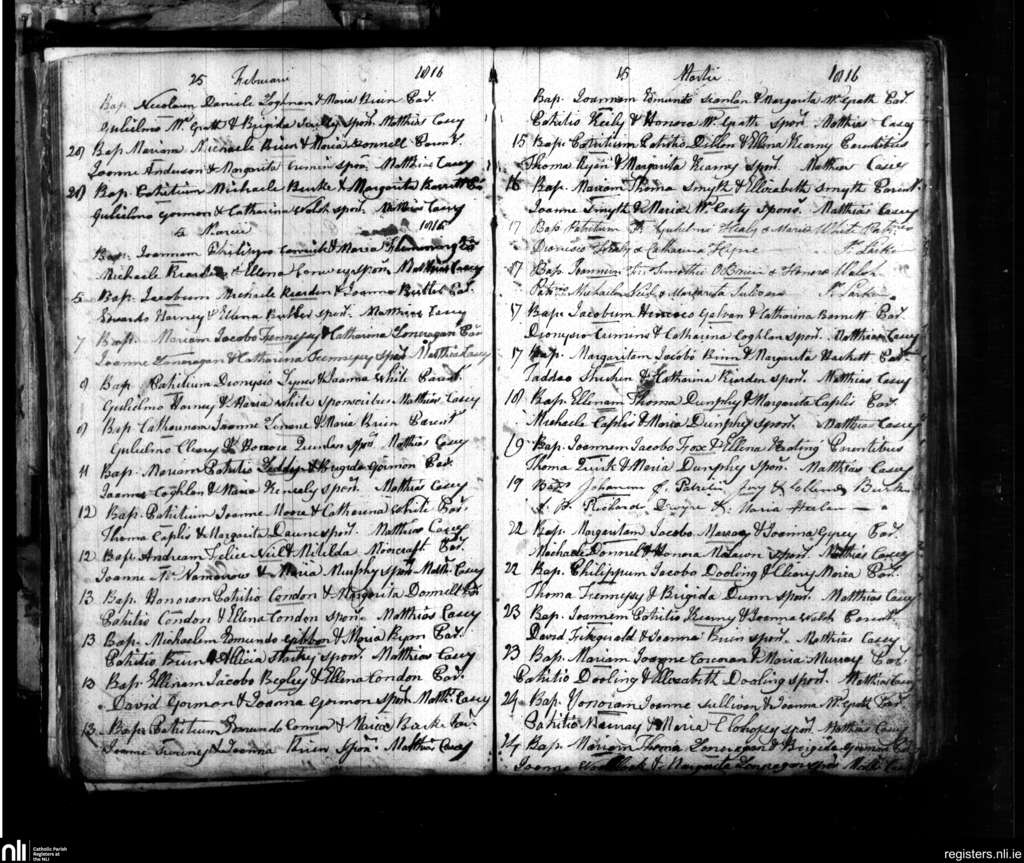 25 Februarii 1816
Bap. Nicolaum Daniele & Maria Brien Par.
Gulielmo McGrath & Brigida spors. Matthias Casey
28) Bap. Mariam Michaele Brien & Maria Connell Parent.
Joanne Anderson & Margarita spors. Matthias Casey
28) Bap. Patritium Michaele Burke & Margarita Barrett
Gulielmo Gorman & Catharina Walsh spors. Matthias Casey
5 Martii 1816
Bap. Joannam Philippo & Maria Flemming
Michaele Rearden & Ellena Conway spors. Matthias Casey
5 Bap. Jacobum Michaele Rearden & Joanna Butler Par.
Edvardo Harney & Ellena Butler spors. Matthias Casey
7 Bap. Mariam Jacobo Fennessy & Catharina Lonergan Par
Joanne Lonergan & Catharina Fennessy spors Matthias Casey
9 Bap. Patritium Dionysio & Joanna White Parent.
Gulielmo Harney & Maria White Matthias Casey
Bap Catharinam Joanne & Maria Brien Parent
Gulielmo Cleary & Honora Quinlan spors Matthias Casey
11 Bap. Mariam Patritio & Brigida Gorman Par.
Joannes Coghlan & Maria spors. Matthias Casey
12 Bap. Patritium Joanne Moore & Catharina White Par.
Thoma Caplis & Margarita spors. Matthias Casey
12 Bap. Andream Felice Neil & Matilda Moorcraft Par.
Joanne & Maria Murphy spors Matth. Casey
13 Bap. Honoram Patritio Condon & Margarita Donnell
Patritio Condon & Ellena Condon spors. Matthias Casey
13 Bap. Michaelem Edmundo Gibbon & Maria Ryan Par.
Patritio Brien & Alicia spors. Matthias Casey
13 Bap. Ellenam Jacobo Begley & Ellena Condon Par.
David Gorman & Joanna Gorman spors Matth. Casey
13. Bap. Patritium Edmundo Connor & Maria Burke
Joanne & Joanna Brien spors. Matthias Casey
15 Martii 1816
Bap. Joannam Edmundo Scanlan & Margarita McGrath Par.
Patritio Neily & Honora McGrath spors Matthias Casey
15 Bap. Patritium Patritio Dillon & Ellena Kearny Parentibus
Thoma Ryan & Margarita Kearny spors. Matthias Casey
16 Bap. Mariam Thoma Smyth & Elizabeth Smyth Parent.
Joanne Smyth & Maria McCarty spors. Matthias Casey
17 Bap Patritium Gulielmo Healy & Maria White
Dionisio Healy & Catharina
17 Bap. Joannem Timothei O'Brien & Honora Walsh
Michaelem Neil & Margarita Sulivan
17 Bap. Jacobum Galvan & Catharina Barrett Par.
Dionysio Cumins & Catharina Coghlan spors. Matthias Casey
17 Bap. Margaritam Jacobo & Margarita Hackett Par.
Taddeo & Catharina Riordan spors. Matthias Casey
18 Bap. Ellenam Thoma Dunphy & Margarita Caplis Par.
Michaele Caplis & Maria Dunphy spors. Matthias Casey
19 Bap. Joannem Jacobo Fox & Ellena Keating Parentibus
Thoma Quirk & Maria Dunphy spors. Matthias Casey
19 Johannem Patritii & Ellena Burk
Richard Dwyre & Maria
22 Bap. Margaritam Jacobo & Joanna Par.
Michaele Donnel & Honora spors. Matthias Casey
22 Bap. Philippum Jacobo Dooling & Cleary Maria Par.
Thoma Fennessy & Brigida Dunn spors. Matthias Casey
23 Bap. Joannem Patritio Kearny & Joanna Walsh Parent
David Fitzgerald & Joanna Brien spors. Matthias Casey
23 Bap. Mariam Joanne Corcoran & Maria Murray Par.
Patritio Dooling & Elizabeth Dooling spors. Matthias Casey
24 Bap. Honoram Joanne Sullivan & Joanna McGrath Par
Patritio Murray & Maria spors Matthias Casey
24 Bap. Mariam Thoma Lonergan & Brigida Gorman
Joanne & Margarita Lonergan spors Matth. Casey
nli
Catholic Parish
Registers at
the NLI
registers.nli.ie